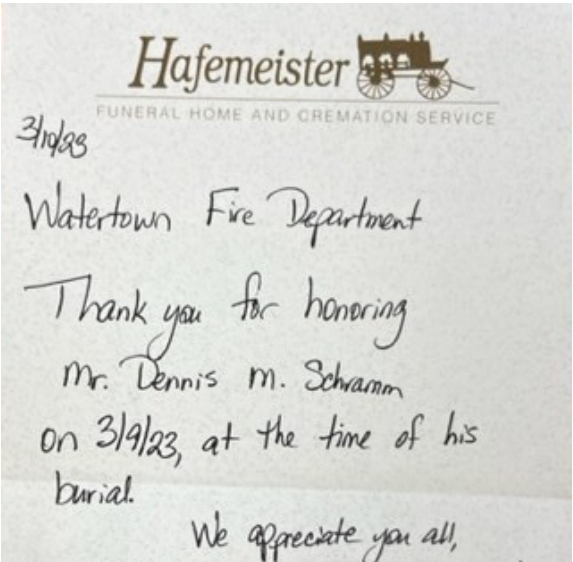 Hafemeister
FUNERAL HOME AND CREMATION SERVICE
3/10/23
Watertown Fire Department
Thank you for honoring
Mr. Dennis M. Schramm
on 3/9/23, at the time of his
burial.
We appreciate you all,